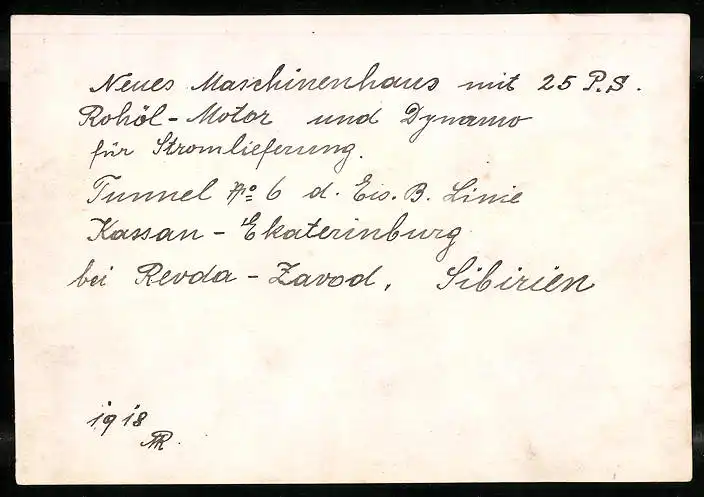 Neues Maschinenhaus mit 25 P.S.
Rohöl-Motor und Dynamo
für Stromlieferung.
Tunnel No 6 d. Eis. B. Linie
Kassan - Ekaterinburg
bei Revda - Zavod, Sibirien
1918